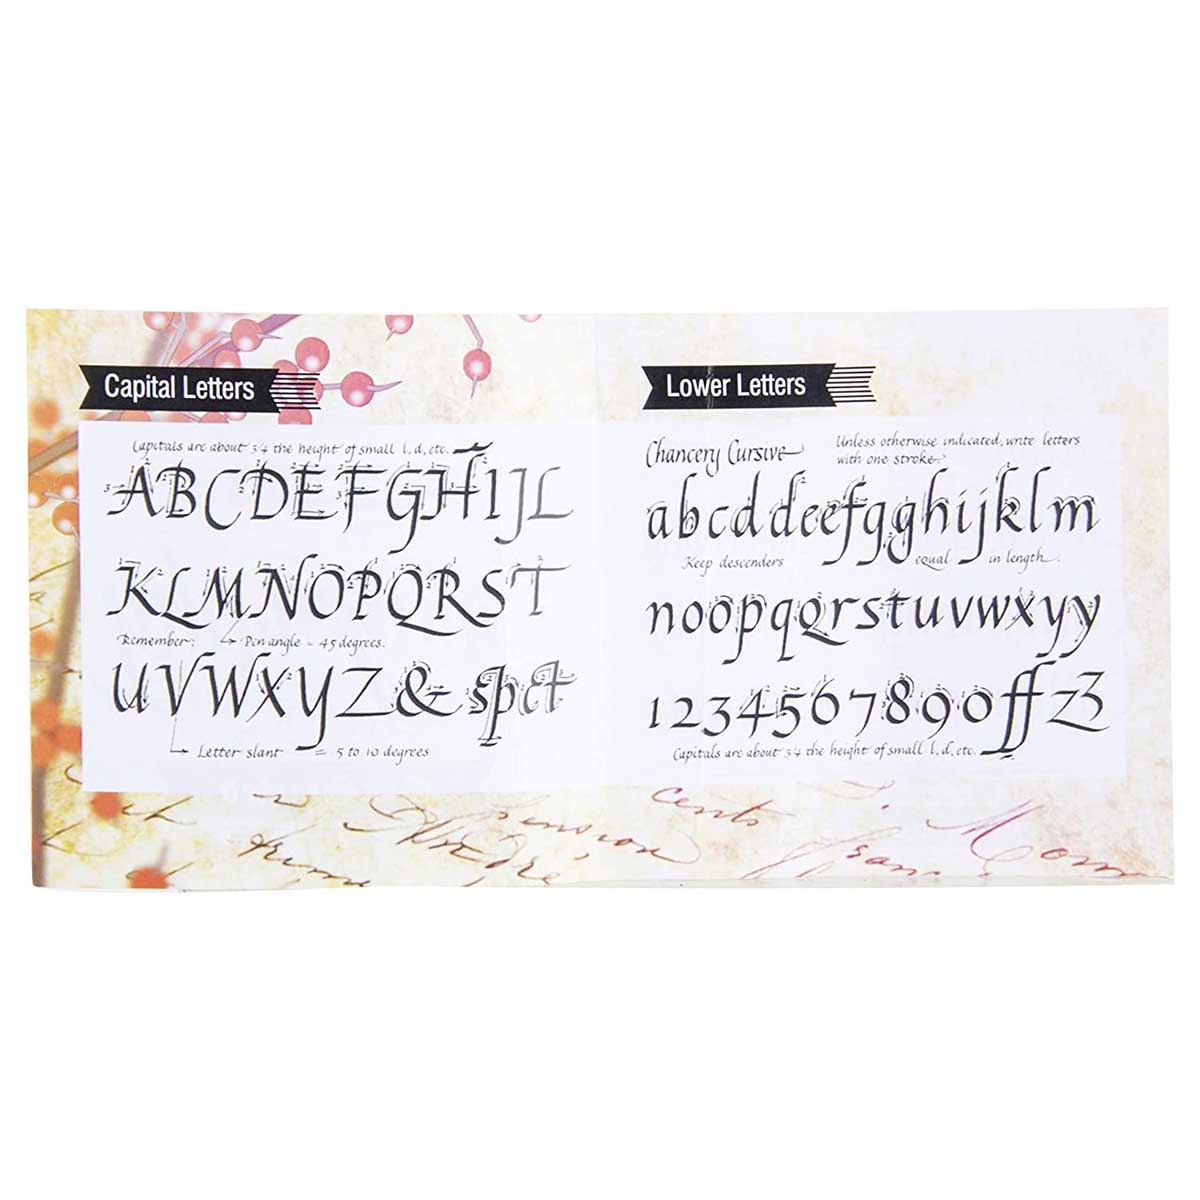 Capital Letters
Capitals are about 3/4 the height of small l, d, etc.
ABCDEFGHIJL
KLMNOPQRST
Remember: Pen angle = 45 degrees.
UVWXYZ& sp ct
Letter slant = 5 to 10 degrees
Lower Letters
Chancery Cursive
Unless otherwise indicated, write letters
with one stroke.
abcddeefgghijklm
Keep descenders equal in length.
noopqQrstuvwxyy
1234567890ffz3
Capitals are about 3/4 the height of small l, d, etc.
cents
pension